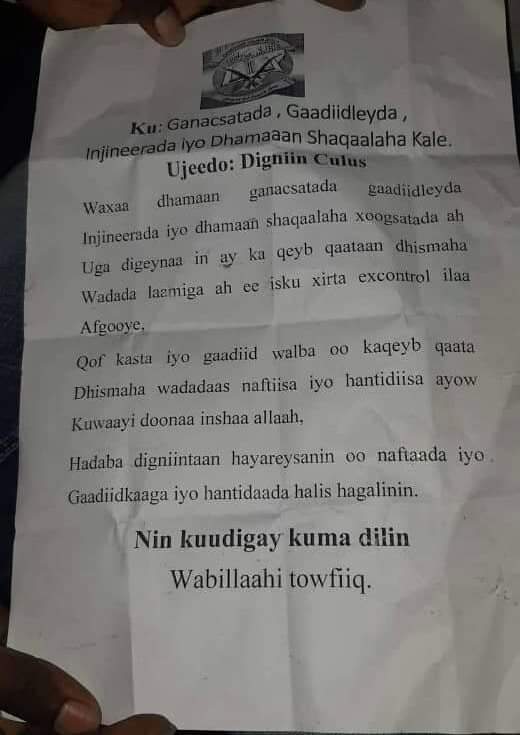 Ku: Ganacsatada , Gaadiidleyda ,
Injineerada iyo Dhamaaan Shaqaalaha Kale.
Ujeedo: Digniin Culus
Waxaa dhamaan ganacsatada gaadiidleyda
Injineerada iyo dhamaan shaqaalaha xoogsatada ah
Uga digeynaa in ay ka qeyb qaataan dhismaha
Wadada laamiga ah ee isku xirta excontrol ilaa
Afgooye,
Qof kasta iyo gaadiid walba oo kaqeyb qaata
Dhismaha wadadaas naftiisa iyo hantidiisa ayow
Kuwaayi doonaa inshaa allaah,
Hadaba digniintaan hayareysanin oo naftaada iyo
Gaadiidkaaga iyo hantidaada halis hagalinin.
Nin kuudigay kuma dilin
Wabillaahi towfiiq.